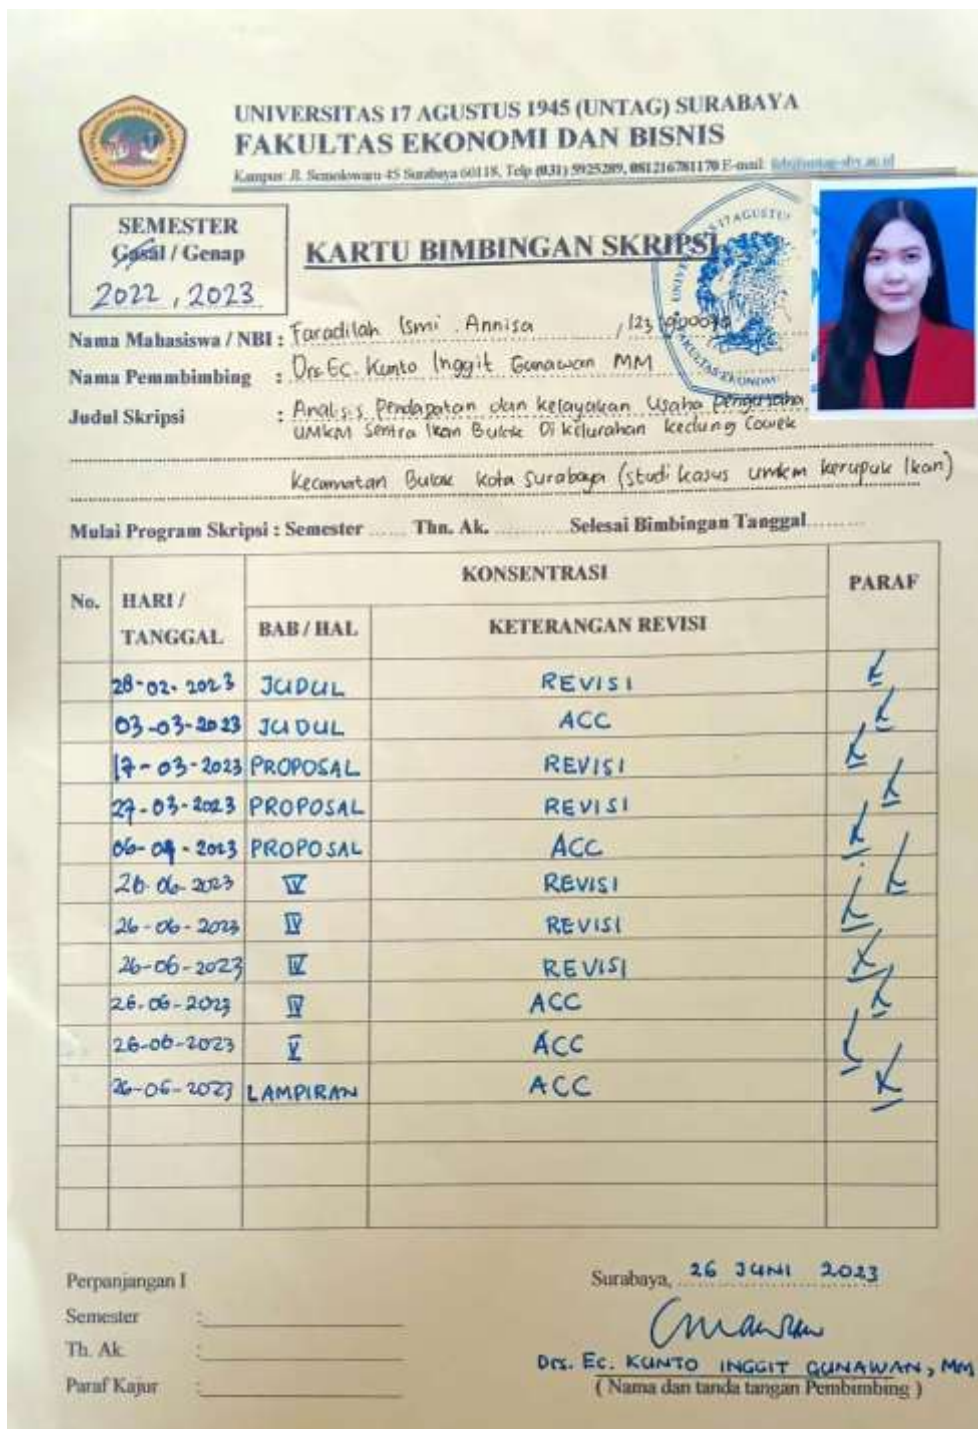 UNIVERSITAS 17 AGUSTUS 1945 (UNTAG) SURABAYA
FAKULTAS EKONOMI DAN BISNIS
Kampus: Jl. Semolowaru 45 Surabaya 60118, Telp (031) 5925289, 081216781170 E-mail:
SEMESTER
Gasal / Genap
2022, 2023
KARTU BIMBINGAN SKRIPSI
Nama Mahasiswa / NBI : Faradilah Ismi Annisa /
Nama Pemmbimbing : Drs. Ec. Kunto Inggit Gunawan MM
Judul Skripsi : Analisis Pendapatan dan kelayakan Usaha pengusaha
UMKM Sentra Ikan Bulak Di kelurahan kedung Cowek
kecamatan Bulak kota Surabaya (studi kasus umkm kerupuk Ikan)
Mulai Program Skripsi : Semester ...... Thn. Ak. ............ Selesai Bimbingan Tanggal.........
No. HARI / TANGGAL KONSENTRASI PARAF
BAB / HAL KETERANGAN REVISI
28-02-2023 JUDUL REVISI
03-03-2023 JUDUL ACC
17-03-2023 PROPOSAL REVISI
27-03-2023 PROPOSAL REVISI
06-04-2023 PROPOSAL ACC
26-06-2023 IV REVISI
26-06-2023 IV REVISI
26-06-2023 IV REVISI
26-06-2023 IV ACC
26-06-2023 V ACC
26-06-2023 LAMPIRAN ACC
Perpanjangan I
Semester :
Th. Ak. :
Paraf Kajur :
Surabaya, 26 JUNI 2023
Drs. Ec. KUNTO INGGIT GUNAWAN, MM
( Nama dan tanda tangan Pembimbing )